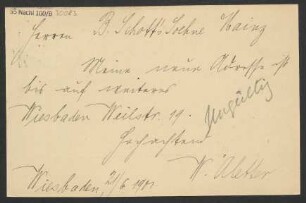 Herrn B. Schott's Soehne Mainz
Meine neue Adresse ist
bis auf weiteres
Wiesbaden Weilstr. 19.
Ungültig
Hochachtend
W. Aletter
Wiesbaden, 21/6 1901